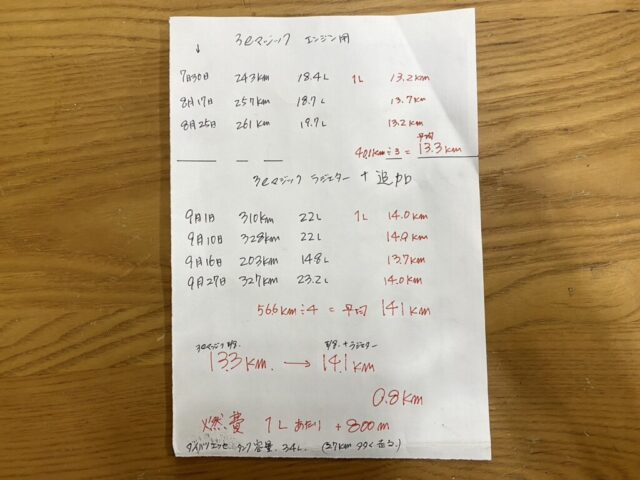 ↓ 3eマジック エンジン用
7月30日 243km 18.4L 1L 13.2km
8月17日 257km 18.7L 13.7km
8月25日 261km 19.7L 13.2km
40.1km÷3 = 平均 13.3km
3eマジック ラジエター + 追加
9月1日 310km 22L 1L 14.0km
9月10日 328km 22L 14.9km
9月16日 203km 14.8L 13.7km
9月27日 327km 23.2L 14.0km
56.6km÷4 = 平均 14.1km
3eマジック
+ラジエター
13.3km. → 14.1km
0.8km
燃費 1Lあたり +800m
タンク容量. 34L. (27km